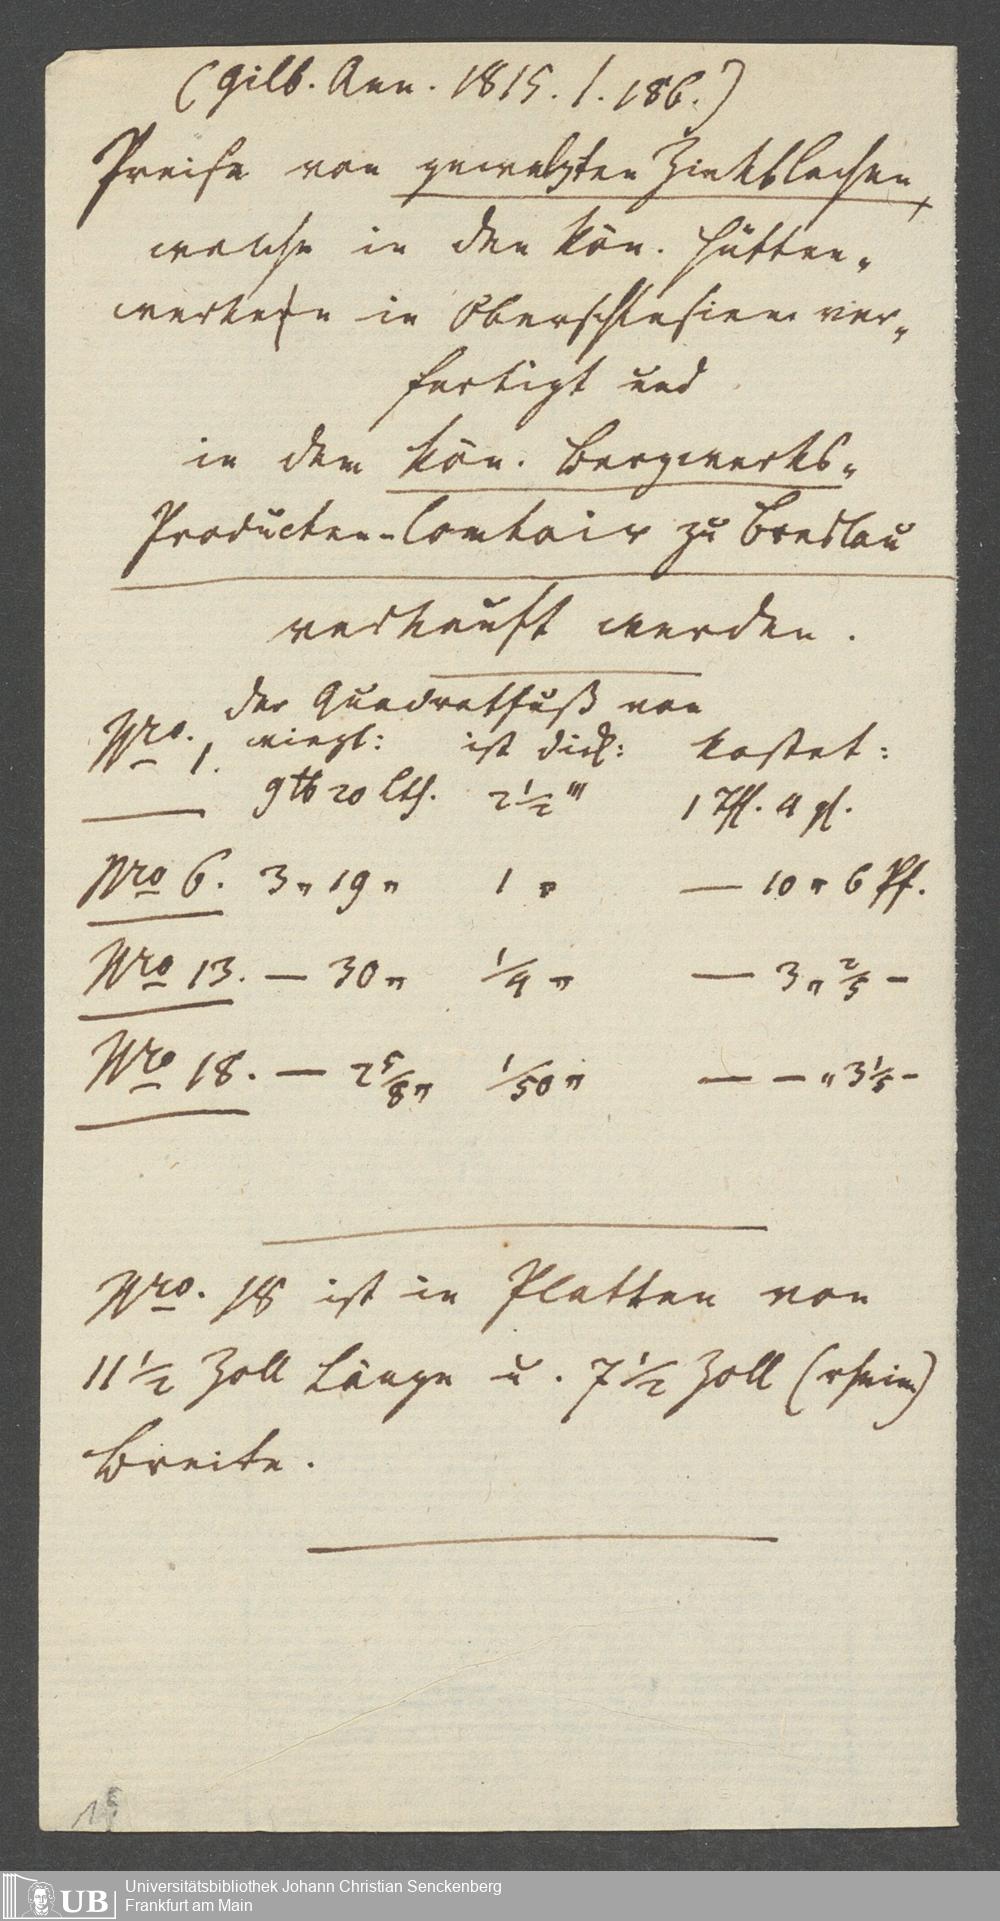 (Gilb. Ann. 1815. 1. 186.)
Preise von gewalzten Zinkblechen,
welche in den Kön. Hütten-
werken in Oberschlesien ver-
fertigt und
in dem Kön. Bergwerks-
Producten-Comtoir zu Breslau
verkauft werden.
der Quadratfuß von
Nro. 1. wiegt: ist dick: kostet:
9 ℔ 20 Lth. 2 1/2 ''' 1 Thl. 4 gl.
Nro 6. 3 „ 19 „ 1 „ — 10 „ 6 Pf.
Nro 13. — 30 „ 1/4 „ — 3 „ 2/5 —
Nro 18. — 2 5/8 „ 1/50 „ — — „ 3 1/5 —
Nro. 18 ist in Platten von
11 1/2 Zoll Länge u. 7 1/2 Zoll (rhein)
Breite.
UB
Universitätsbibliothek Johann Christian Senckenberg
Frankfurt am Main